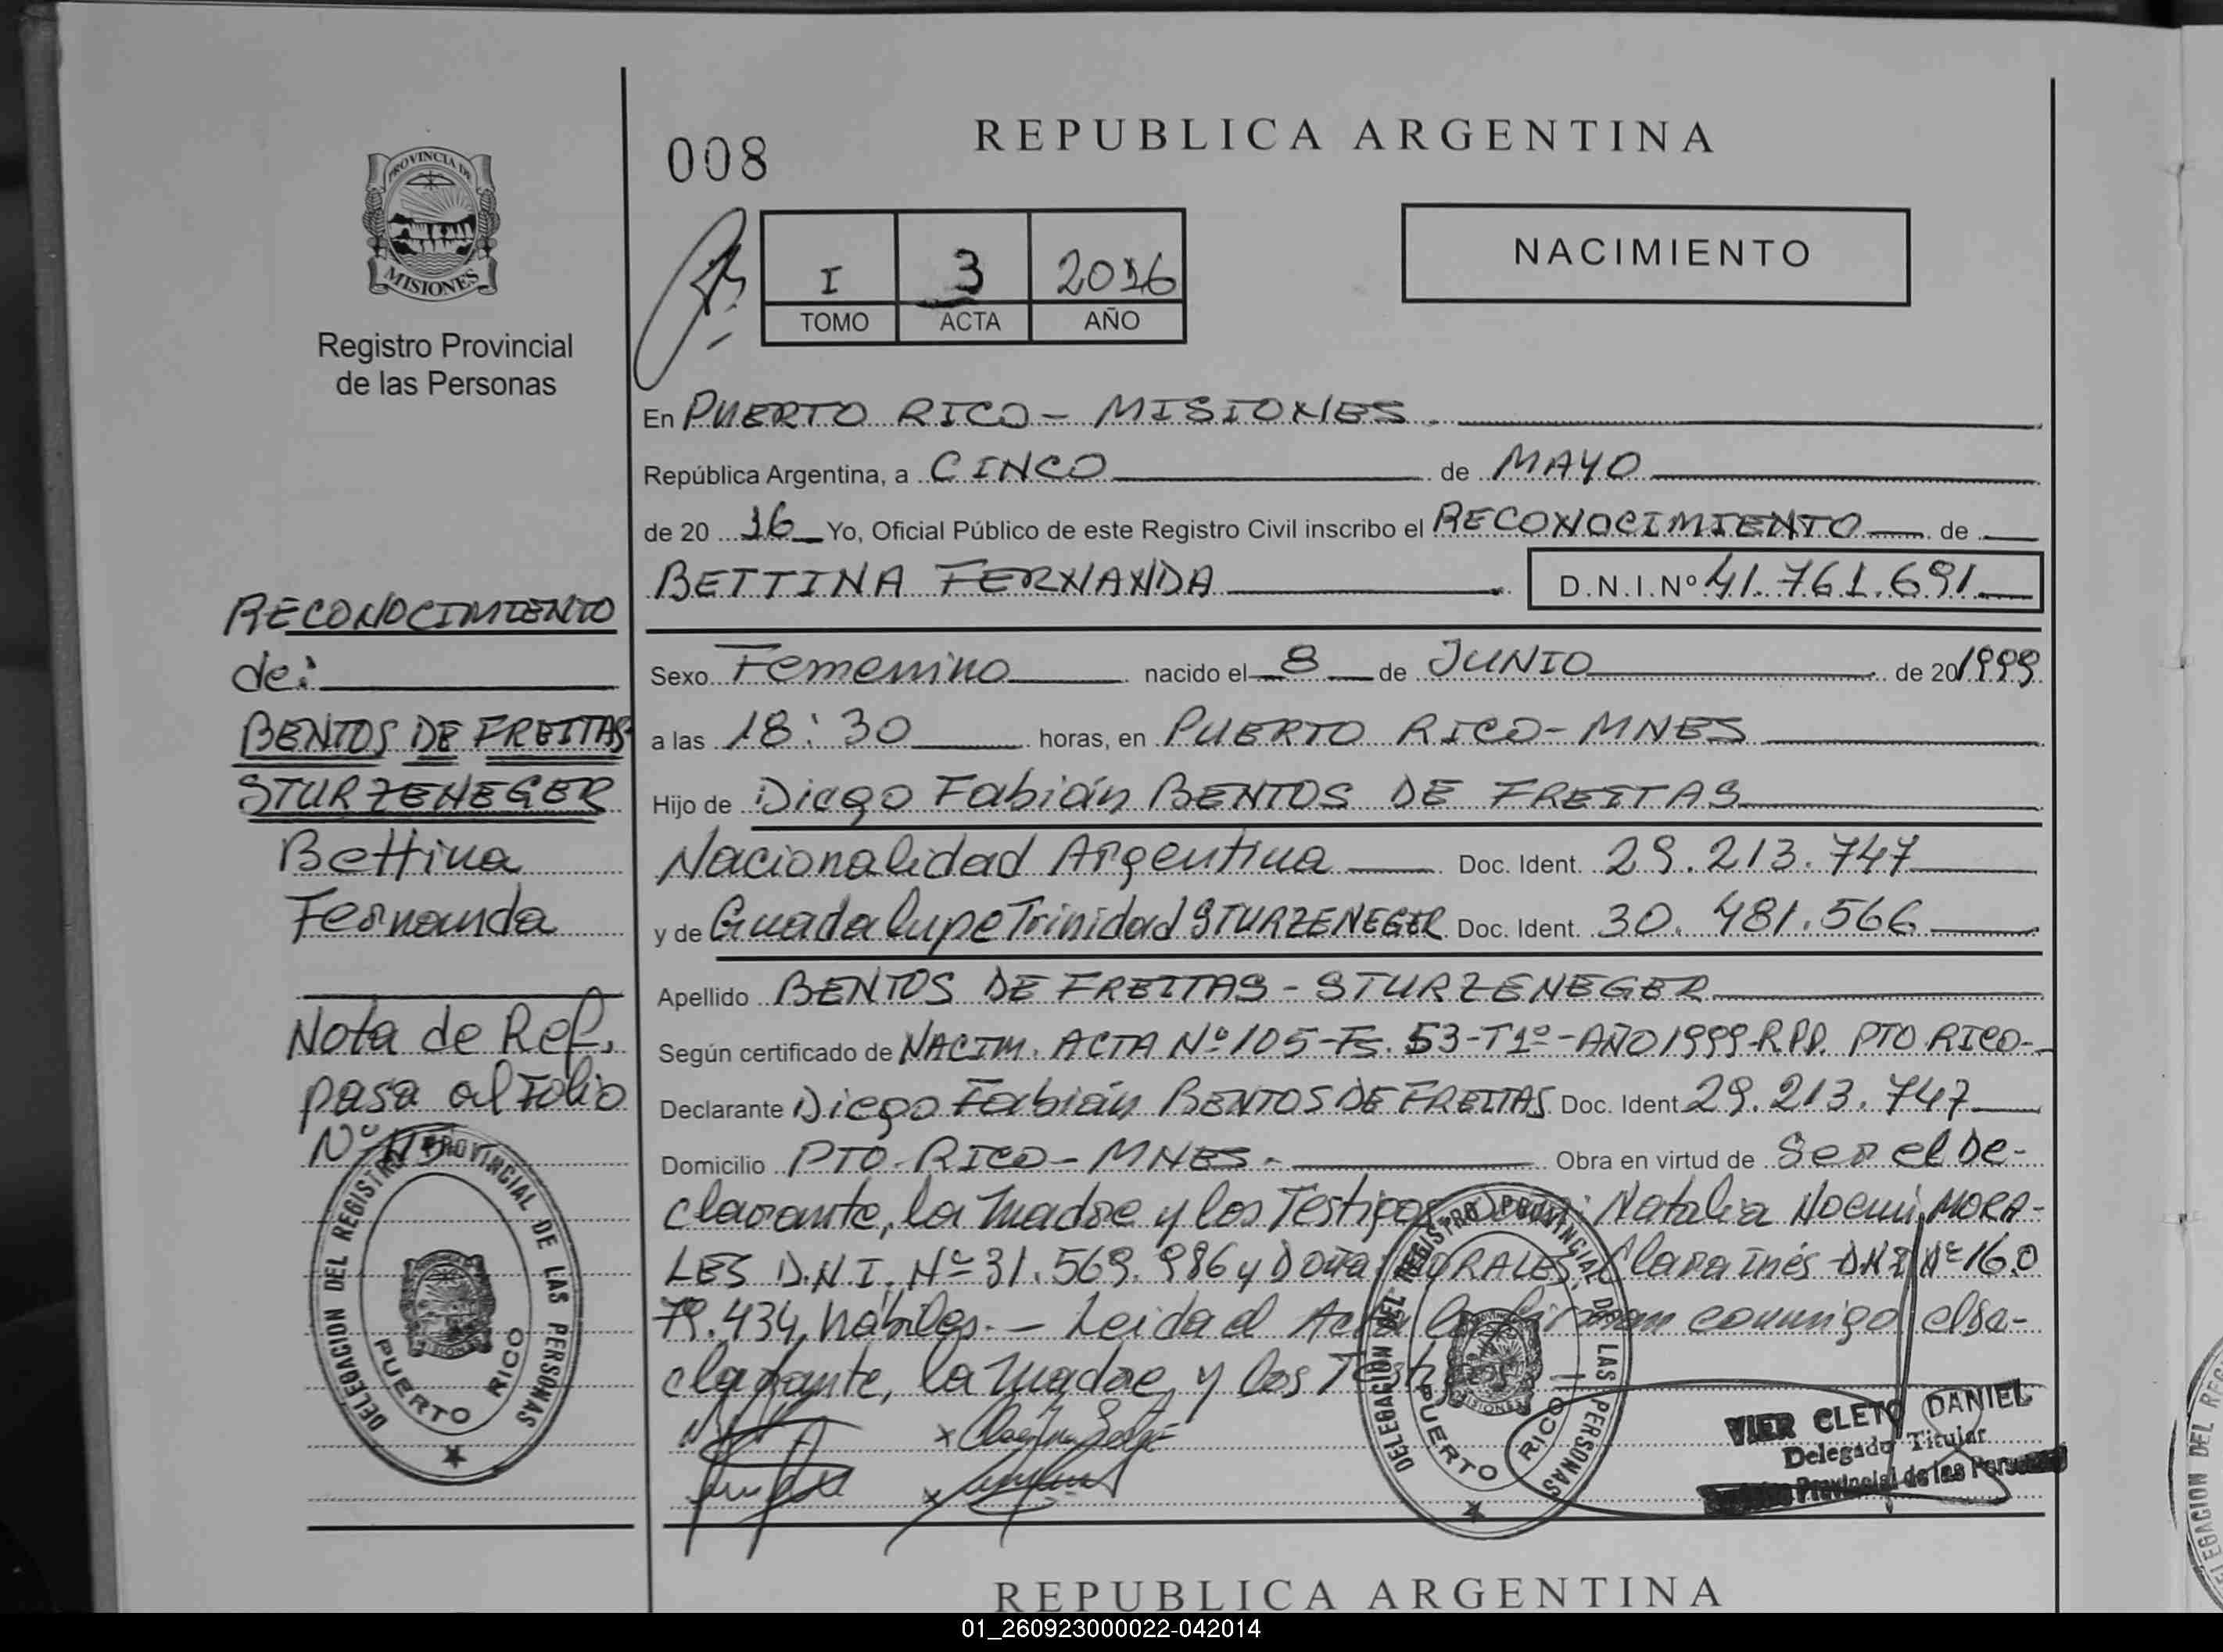 008
REPUBLICA ARGENTINA
PROVINCIA DE
MISIONES
Registro Provincial
de las Personas
I 3 2016
TOMO ACTA AÑO
NACIMIENTO
En PUERTO RICO - MISIONES
República Argentina, a CINCO de MAYO
de 20 16 Yo, Oficial Público de este Registro Civil inscribo el RECONOCIMIENTO de
BETTINA FERNANDA D.N.I.Nº 41.761.691
Sexo Femenino nacido el 8 de JUNIO de 20/1999
a las 18:30 horas, en PUERTO RICO - MNES
Hijo de Diego Fabián BENTOS DE FREITAS
Nacionalidad Argentina Doc. Ident. 29.213.747
y de Guadalupe Trinidad STURZENEGER Doc. Ident. 30.481.566
Apellido BENTOS DE FREITAS - STURZENEGER
Según certificado de NACIM. ACTA Nº 105-Fs. 53-T1º-AÑO 1999-R.P.P. PTO RICO-
Declarante Diego Fabián BENTOS DE FREITAS Doc. Ident 29.213.747
Domicilio PTO. RICO - MNES. Obra en virtud de Ser el De-
clarante, la Madre y los Testigos Natalia Noemi MORA-
LES D.N.I. Nº 31.569.986 y Doña MORALES, Clara Inés DNI Nº 16.0
79.434, hábiles. - Leida el Acta la firman conmigo el De-
clarante, la Madre, y los Testigos
RECONOCIMIENTO
de:
BENTOS DE FREITAS
STURZENEGER
Bettina
Fernanda
Nota de Ref.
pasa al Folio
Nº
DELEGACION DEL REGISTRO PROVINCIAL DE LAS PERSONAS
PUERTO RICO
DELEGACION DEL REGISTRO PROVINCIAL DE LAS PERSONAS
PUERTO RICO
VIER CLETO DANIEL
Delegado Titular
Provincial de las Personas
REPUBLICA ARGENTINA
01_260923000022-042014